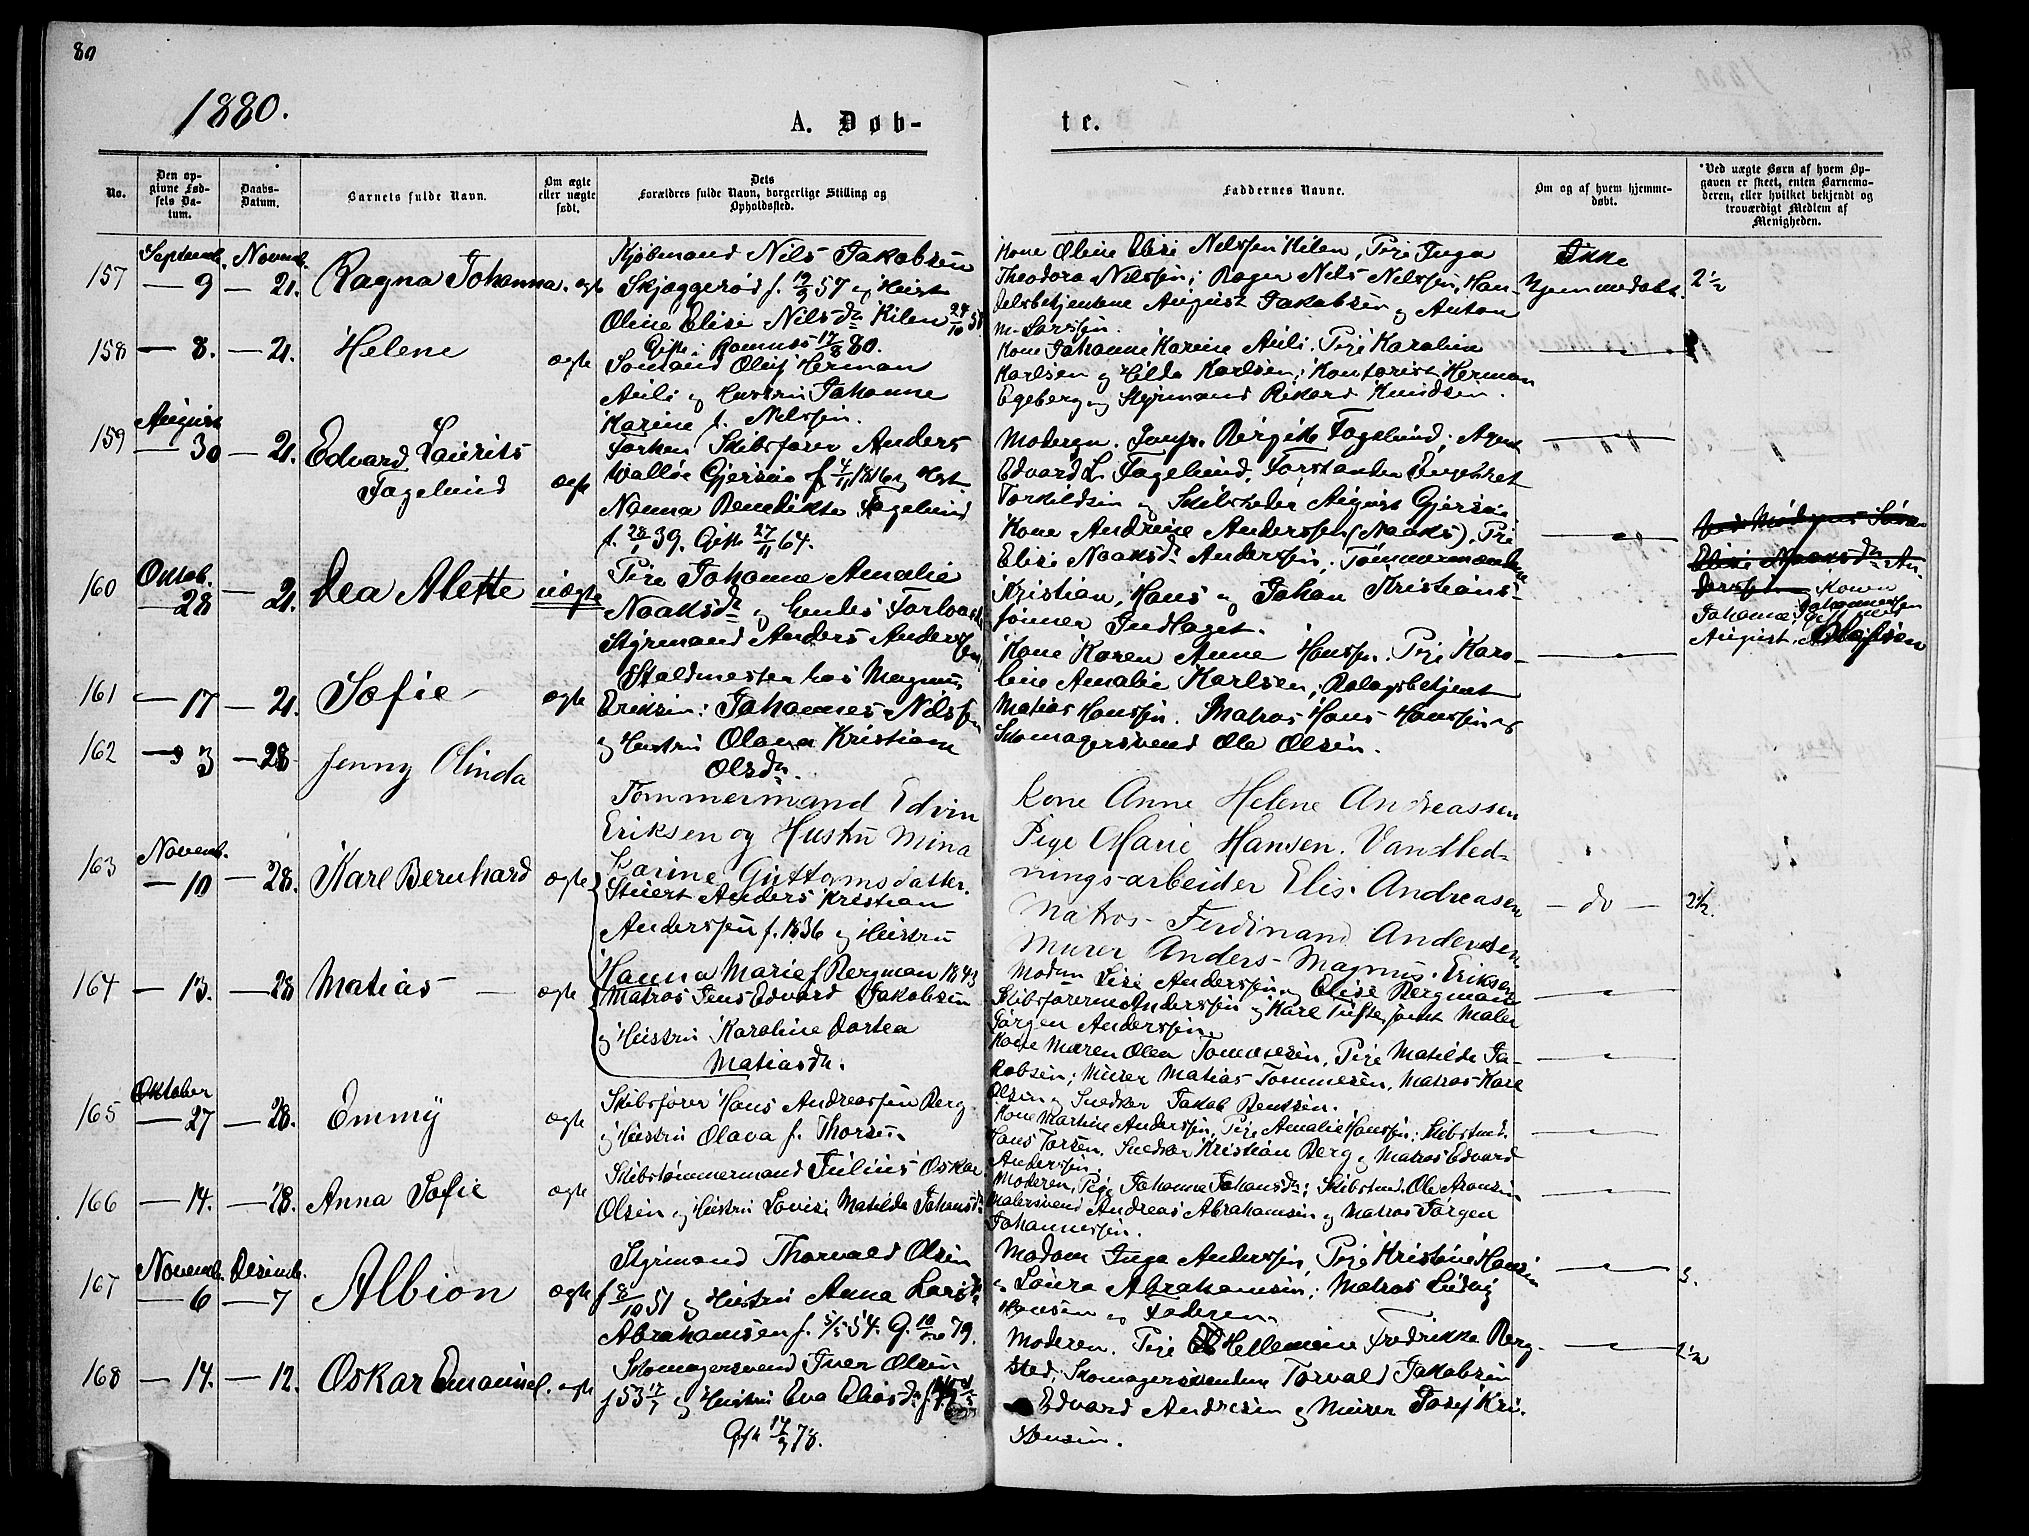 80
1880.
A. Døb-
te.
No.
Den op-
givne Fød-
sels Da-
tum.
Daabs-
Datum.
Barnets fulde Navn.
Om ægte
eller uægte
født.
Dets
Forældres fulde Navn, borgerlige Stilling og
Opholdssted.
Faddernes Navne.
Om og af hvem hjemme-
døbt.
*Ved uægte Børn af hvem Op-
gaven er skeet, enten Barnemo-
deren, eller hvilket bekjendt og
troværdigt Medlem af
Menigheden.
157
Septemb. — 9
Novemb. — 21.
Ragna Johanna. ægte
Kjøbmand Nils Jakobsen
Skjæggerød f. 19/9 57 og Hust.
Oline Elise Nilsdr Kilen 24/10 58
Gifte i Ramnæs 17/8 80.
Kone Oline Elise Nelssen Kilen, Pige Inga
Theodora Nilssen; Bager Nils Nilssen, Han-
delsbetjentene August Jakobsen og Anton
M. Larssen.
Ikke
hjemmedøbt.
2 1/2
158
— 8. — 21.
Helene
ægte
Sømand Oluf Herman
Auli og Hustru Johanne
Karine f. Nilssen.
Kone Johanne Karine Auli. Pige Karoline
Karlsen og Hilda Karlsen; Kontorist Herman
Egeberg og Styrmand Rikard Knudsen.
159
August
— 30 — 21.
Edvard Laurits
Fagelund
ægte
Forhen Skibsfører Anders
Walløe Gjersøe f. 4/11 1816 og Hust.
Nanna Benedikte Fagelund
f. 28/1 39. Gifte 27/11 64.
Moderen. Jomfr. Birgitte Fagelund; Agent
Edvard L. Fagelund, Forstander Engebret
Torkildsen og Skibsreder August Gjersøe
160
Oktob.
— 28 — 21.
Dea Alette
uægte
Pige Johanne Amalie
Noaksdr og
Styrmand Anders Anderssen
Kone Andrine Anderssen (Noaks), Pige
Elise Noaksdr Anderssen, Tømmermændene
Kristian, Hans og Johan Kristians-
sønner Indlaget.
Elise Noaksdr An-
derssen Konen
Johanne Johannessen
August Olafsen
161
— 17 — 21.
Sofie
ægte
Staldmester hos Magnus
Eriksen: Johannes Nilssen
og Hustru Olava Kristiane
Olsdr.
Kone Karen Anne Hanssen. Pige Karo-
line Amalie Karlsen; Bolagsbetjent
Matias Hanssen. Matros Hans Hanssen og
Skomagersvend Ole Olsen.
162
— 3 — 28
Jenny Olinda
Tømmermand Edvin
Eriksen og Hustru Mina
Karine Guttormsdatter.
Kone Anne Helene Andreassen
Pige Marie Hansen. Vandled-
ningsarbeider Elis Andreasen
Matros Ferdinand Andersen
Murer Anders Magnus Eriksen
— do —
2 1/2.
163
Novemb.
— 10 — 28.
Karl Bernhard
ægte
Stuert Anders Kristian
Anderssen f. 1836 og Hustru
Hanna Marie f. Bergman 1843
Madam Lise Anderssen og Elise Bergman
Skibsførerne Anderssen og Karl Tufte samt Maler
Jørgen Anderssen.
164
— 13. — 28
Matias
ægte
Matros Jens Edvard Jakobsen
og Hustru Karoline Dortea
Matiasdr.
Kone Maren Olea Tommesen, Pige Matilde Ja-
kobsen; Murer Matias Tommesen, Matros Karl
Olsen og Snedker Jakob Bentsen.
165
Oktober
— 27 — 28.
Emmy
ægte
Skibsfører Hans Andreassen Berg
og Hustru Olava f. Thorsen
Kone Martine Anderssen, Pige Amalie Hanssen; Skibstmd.
Hans Torsen, Snedker Kristian Berg og Matros Edvard
Anderssen.
166
— 14. — 28.
Anna Sofie
ægte
Skibstømmermand Julius Oskar
Olsen og Hustru Lovise Matilde Johansdr
Moderen, Pige Johanne Johansdr; Skibstmd. Ole Aronsen
Malersvend Andreas Abrahamsen og Matros Jørgen
Johannessen.
167
Novemb. Desemb.
— 6 — 7
Albion
ægte
Styrmand Thorvald Olsen
f 8/10 51 og Hustru Anna
Abrahamsen f. 5/5 54. G. 10/ 79.
Madam Inga Anderssen, Pige Kristine Hansen
og Laura Abrahamsen; Matros Ludvig
Hansen og Faderen
3.
168
— 14. — 12.
Oskar Emanuel. ægte
Skomagersvend Iver Olsen
f 53 17/7 og Hustru Eva Eliasdr
Gift 17/9 78.
Moderen. Pige Hellemine Fredrikke Berg-
sted; Skomagersvendene Torvald Jakobsen
Edvard Andresen og Murer Josef Kri-
stensen.
2 1/2